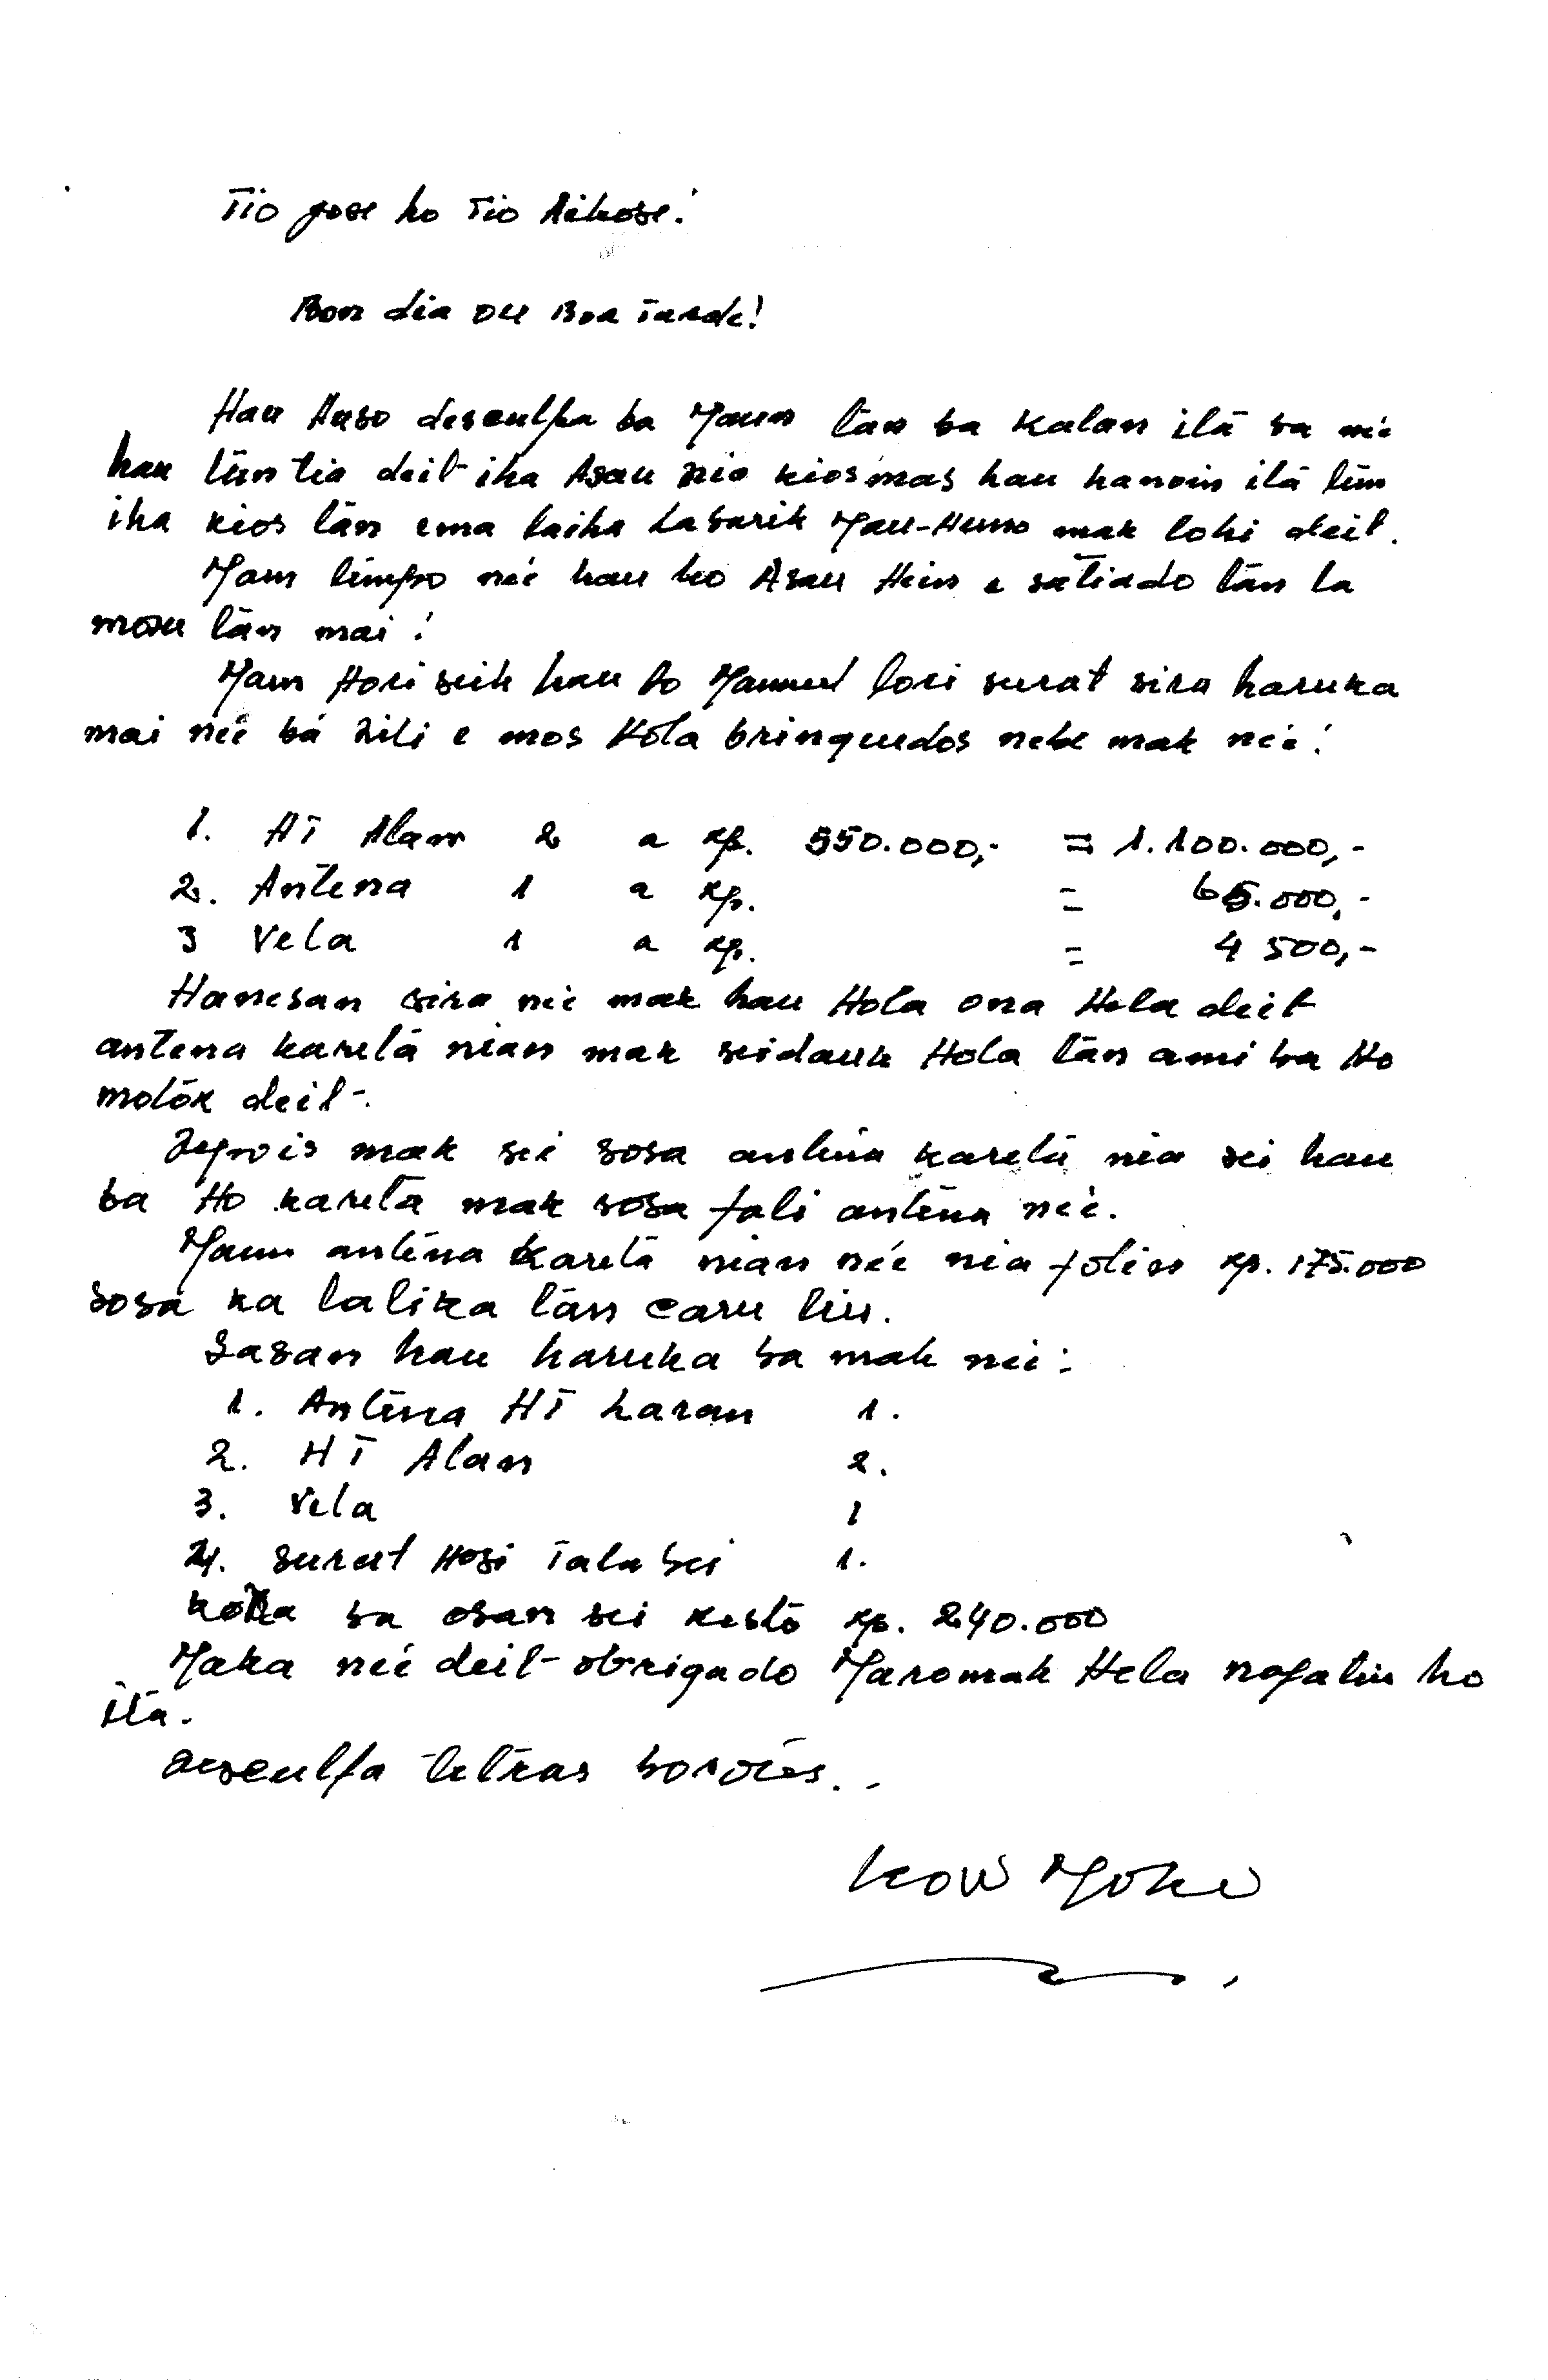 Tio Jose ho Tio Aikose!
Bon dia ou Boa Tarde!
Hau Huso desculpa ba Maun tan ba kalan ita ba ne'e
hau tun tia deit iha Asau nia kios mas hau hanoin ita tun
iha kios tan ema laiha Labarik Mau-Huno mak lohi deit.
Maun timpo ne'e hau ho Asau Hein e satiado tan la
mosu tan mai!
Maun Hori seik hau ho Manuel lori surat sira haruka
mai ne'e bá Dili e mos Hola brinquedos nebe mak ne'e!
1. HT Alan 2 a Rp. 550.000,- = 1.100.000,-
2. Antena 1 a Rp. = 65.000,-
3 Vela 1 a Rp. = 4 500,-
Hanesan sira ne'e mak hau Hola ona Hela deit
antena kareta nian mak seidauk Hola tan ami ba Ho
motor deit.
Depois mak sei sosa antena kareta nia sei hau
ba Ho kareta mak sosa fali antena ne'e.
Maun antena kareta nian ne'e nia folin Rp. 175.000
sosa ka lalika tan caru liu.
Sasan hau haruka ba mak ne'e:
1. Antena HT Laran 1.
2. HT Alan 2.
3. Vela 1
4. Surat Hosi Tala bei 1.
ba osan sei resto Rp. 240.000
Maka ne'e deit obrigado Maromak Hela nafatin ho
ita.
Desculpa letras borões..
Kow Moke